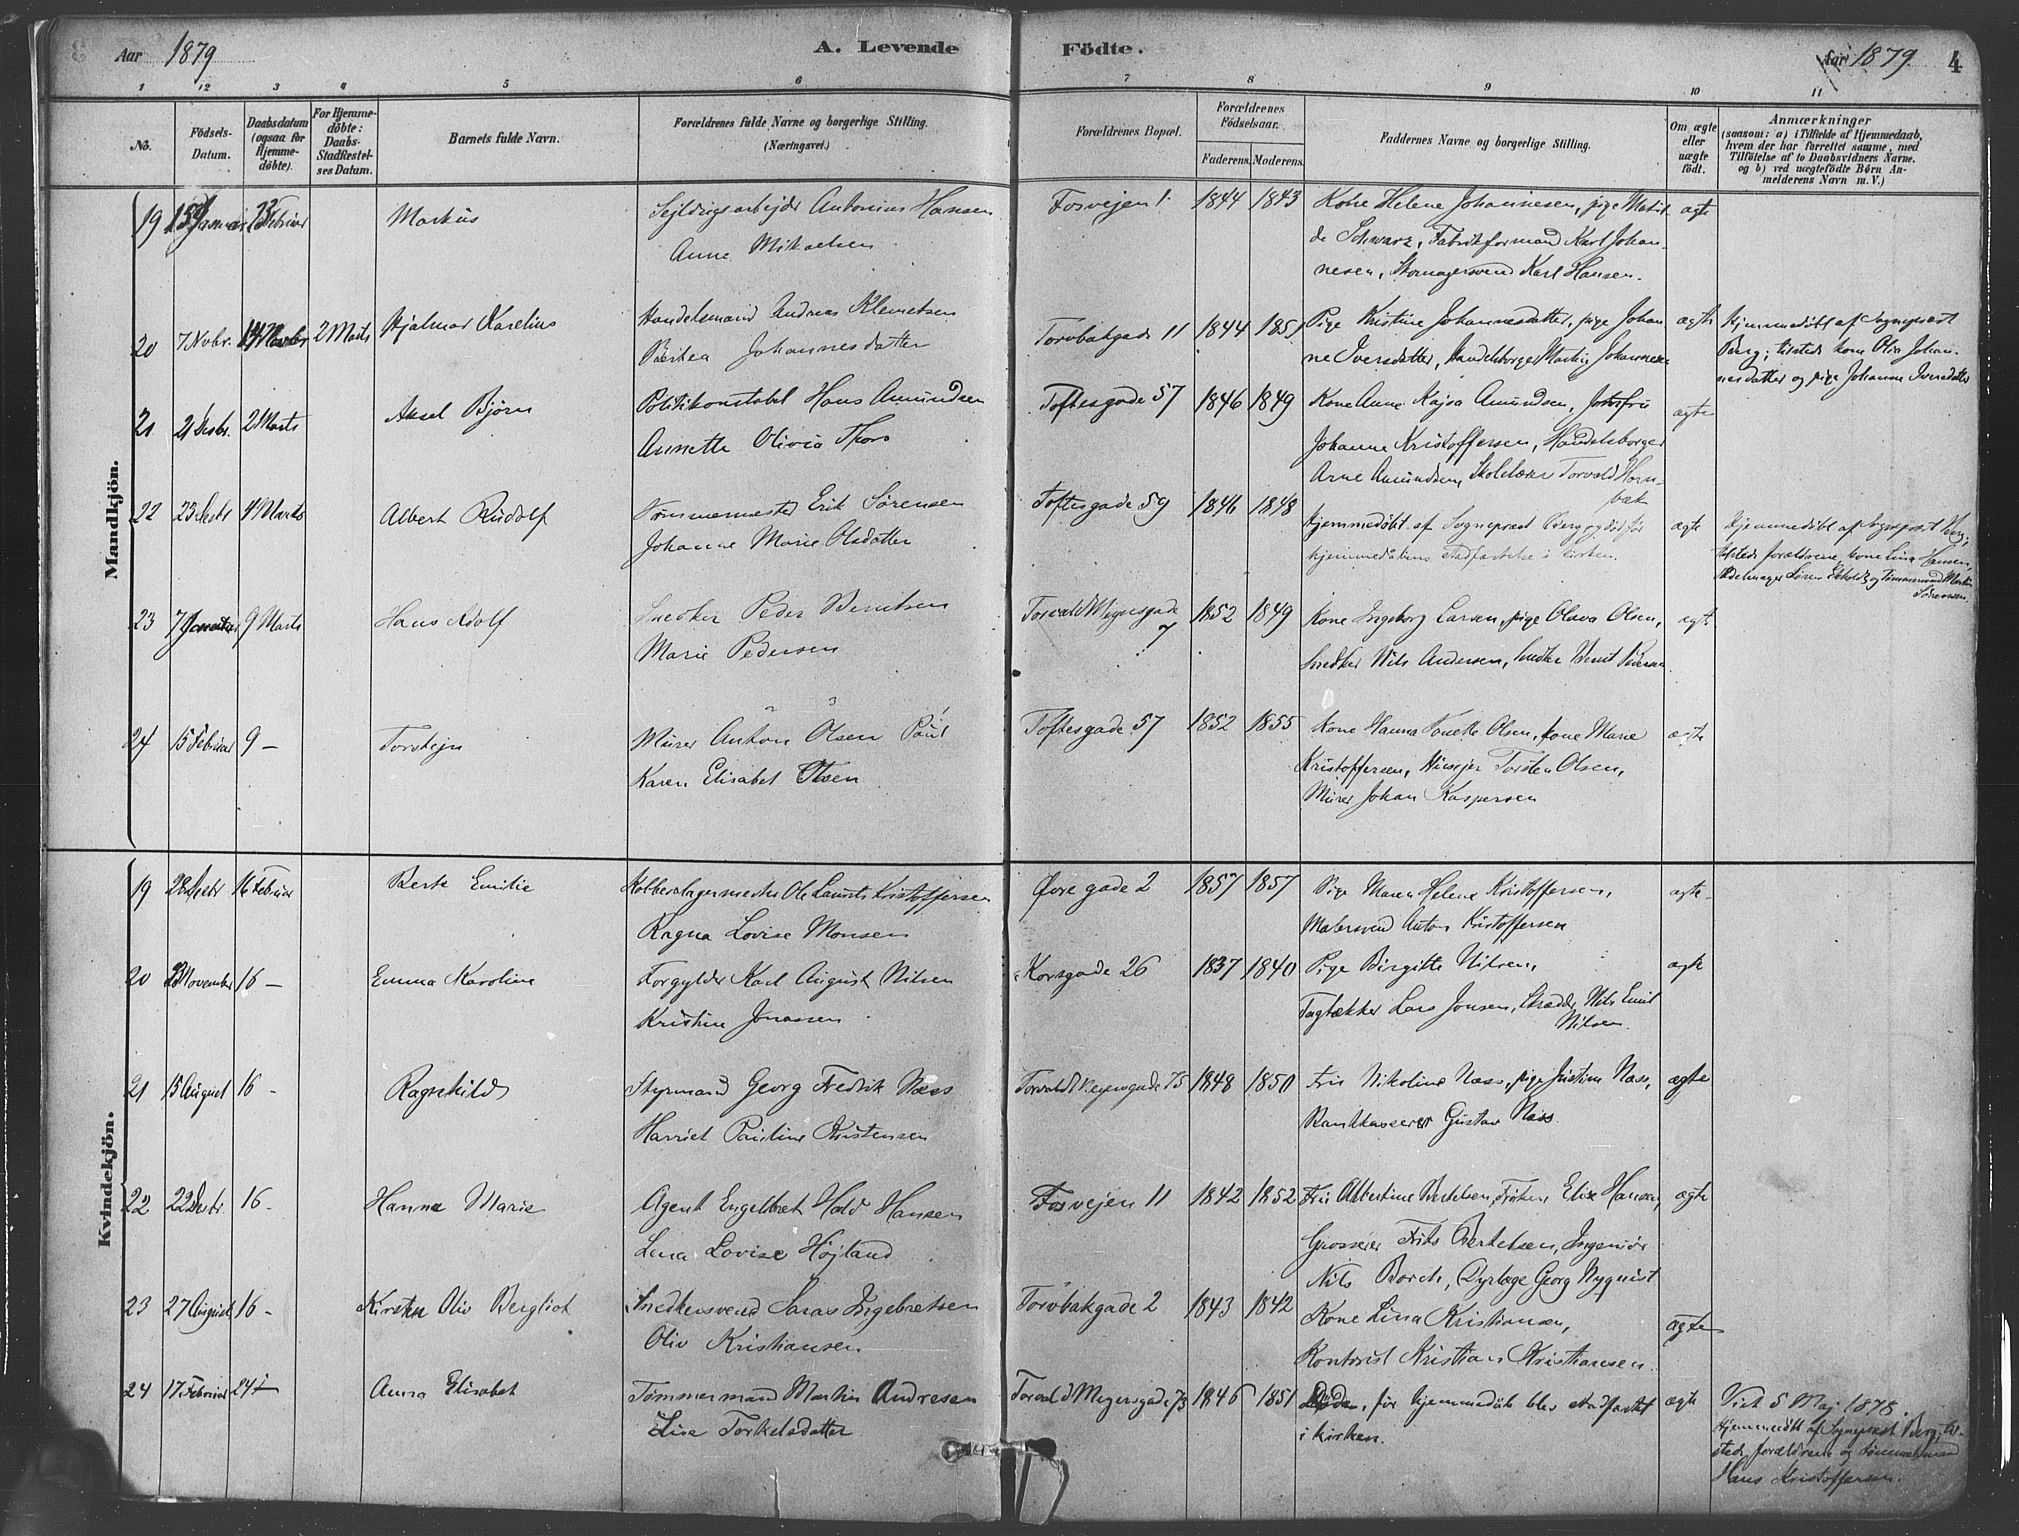 Aar 1879 A. Levende Födte. Aar 1879. 4
1 12 3 4 5 6 7 8 9 10 11
No.
Födsels-
Datum.
Daabsdatum
(ogsaa for
Hjemme-
döbte).
For Hjemme-
döbte:
Daabs-
Stadfæstel-
ses Datum.
Barnets fulde Navn.
Forældrenes fulde Navne og borgerlige Stilling.
(Næringsvei.)
Forældrenes Bopæl.
Forældrenes
Födselsaar.
Faderens. Moderens.
Faddernes Navne og borgerlige Stilling.
Om ægte
eller
uægte
födt.
Anmærkninger
(saasom: a) i Tilfælde af Hjemmedaab,
hvem der har forrettet samme, med
Tilföielse af to Daabsvidners Navne.
og b) ved uægtefödte Börn An-
melderens Navn m. V.)
Mandkjön.
19 Januar Februar Markus Sejldugsarbejder Antonius Hansen Fosvejen 1. 1844 1843 Kone Helene Johannesen, pige Matil- ægte
Anne Mikaelsen de Schwarz, Fabrikformand Karl Johan-
nesen, Karl Hansen.
20 7 Novbr. 2 Marts Hjalmar Karelius Handelsmand Andreas Klemetsen Torvbakgade 11 1844 1851 Pige Kristine Johannesdatter, pige Johan ægte Hjemmedöbt af Sogneprest
Johannesdatter ne Iversdatter, Handelsborger Martin Johannesen Berg; tilstede kone Olia Johan-
nesdatter og pige Johanne Iversdatter
21 21 Desbr. 2 Marts Aksel Björn Politikonstabel Hans Amundsen Toftesgade 57 1846 1849 Kone Anne Kajsa Amundsen, ægte
Annette Olivia Thors Johanne Kristoffersen, Handelsborger
Arne Amundsen, Skolelærer Torvald Horn-
bæk
22 23 Desbr. Marts Albert Rudolf Tömmermester Erik Sørensen Toftesgade 59 1846 1848 Hjemmedöbt af Sogneprest Berg og död för ægte Hjemmedöbt af Sogneprest Berg;
Johanne Marie Olsdatter hjemmedaabens Stadfæstelse i Kirken. tilstede forældrene, kone Lina Hansen,
Sadelmager Sören og Tömmermand Martin
Sørensen.
23 7 Januar 9 Marts Hans Adolf Snedker Peder Berntsen Torvald Meyersgade 1852 1849 Kone Ingeborg Larsen, pige Olava Olsen, ægte
Marie Pedersen 7 Snedker Nils Andersen, Snedker Bernt Pedersen
24 15 Februar 9 – Torstejn Murer Anton Olsen Paul Toftesgade 57 1852 1855 Kone Hanna Olsen, kone Marie ægte
Karen Elisabet Olsen Kristoffersen, Torsten Olsen,
Murer Johan Kaspersen
Kvindekjön.
19 28 Desbr 16 Februar Berte Emilie Ole Laurits Kristoffersen Øvre gade 2 1857 1857 Pige Maren Helene Kristoffersen, ægte
Ragna Lovise Monsen Malersvend Anton Kristoffersen
20 November 16 – Emma Karoline Forgylder Karl August Nilsen Korsgade 26 1837 1840 Pige Birgitte Nilsen, ægte
Kristine Jonassen Tagtækker Lars Jonsen, Skrædder Nils Emil
Nilsen.
21 15 August 16 – Ragnhild Styrmand Georg Fredrik Næss Torvald Meyersgade 75 1848 1850 Fru Nikoline Næss, pige Justine Næss, ægte
Harriet Pauline Kristensen Bankkasserer Gustav Næss.
22 22 Desbr. 16 – Hanna Marie Agent Engelbret Hald Hansen Fosvejen 11 1842 1852 Fru Albertine Bertelsen, Frøken Elise Hansen, ægte
Lena Lovise Højland Grosserer Frits Bertelsen, Ingeniör
Nils Borch, Dyrlæge Georg Nyquist
23 27 August 16 – Kirsten Oliv Bergliot Snedkersvend Saras Ingebretsen Torvbakgade 2 1843 1842 Kone Lina Kristiansen, ægte
Oliv Kristiansen Kontorist Kristian Kristiansen.
24 17 Februar 24 – Anna Elisabet Tömmermand Martin Andresen Torvald Meyersgade 73 1846 1851 Döden, för hjemmedaab blev stadfæstet ægte Viet 5 Maj 1878.
Lise Torkelsdatter i kirken. Hjemmedöbt af Sogneprest Berg; til-
stede forældrene og tömmermand
Hans Kristoffersen.